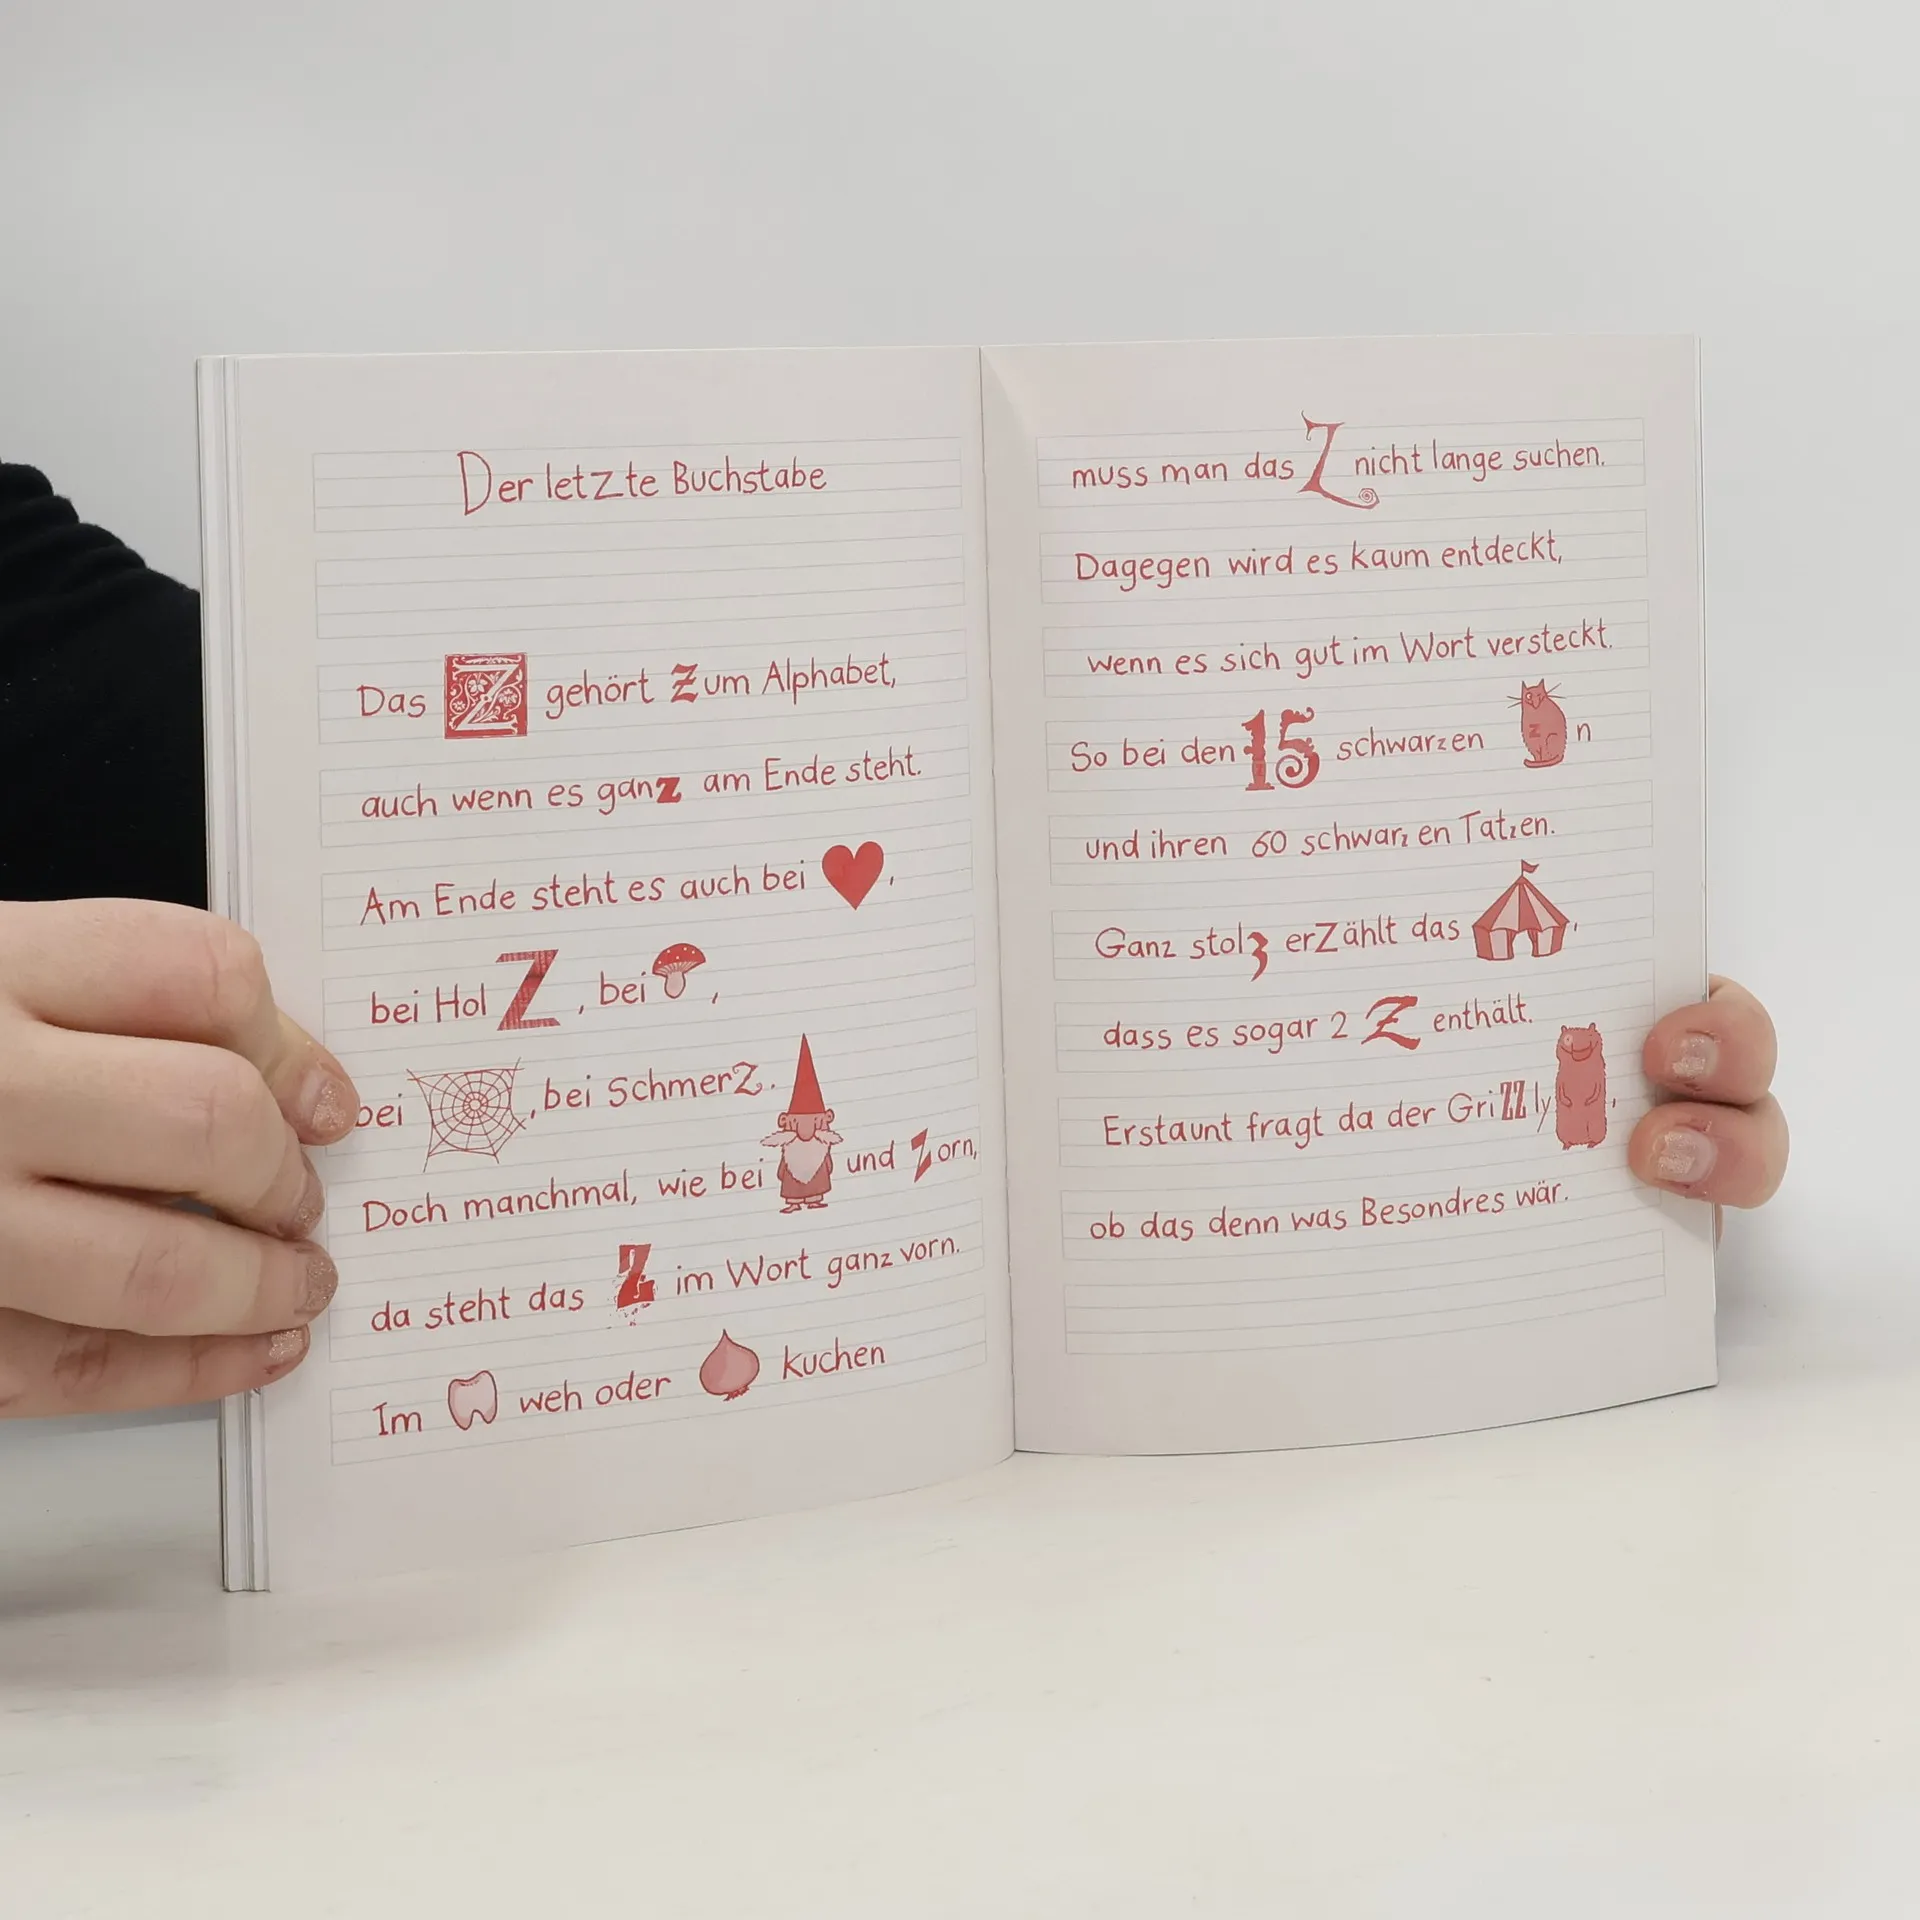 Der letzte Buchstabe
Das Z gehört zum Alphabet,
auch wenn es ganz am Ende steht.
Am Ende steht es auch bei ,
bei HolZ, bei ,
bei , bei SchmerZ.
Doch manchmal, wie bei und Zorn,
da steht das Z im Wort ganz vorn.
Im weh oder kuchen
muss man das Z nicht lange suchen.
Dagegen wird es kaum entdeckt,
wenn es sich gut im Wort versteckt.
So bei den 15 schwarzen n
und ihren 60 schwarzen Tatzen.
Ganz stolz erZählt das ,
dass es sogar 2 Z enthält.
Erstaunt fragt da der GriZZly ,
ob das denn was Besondres wär.